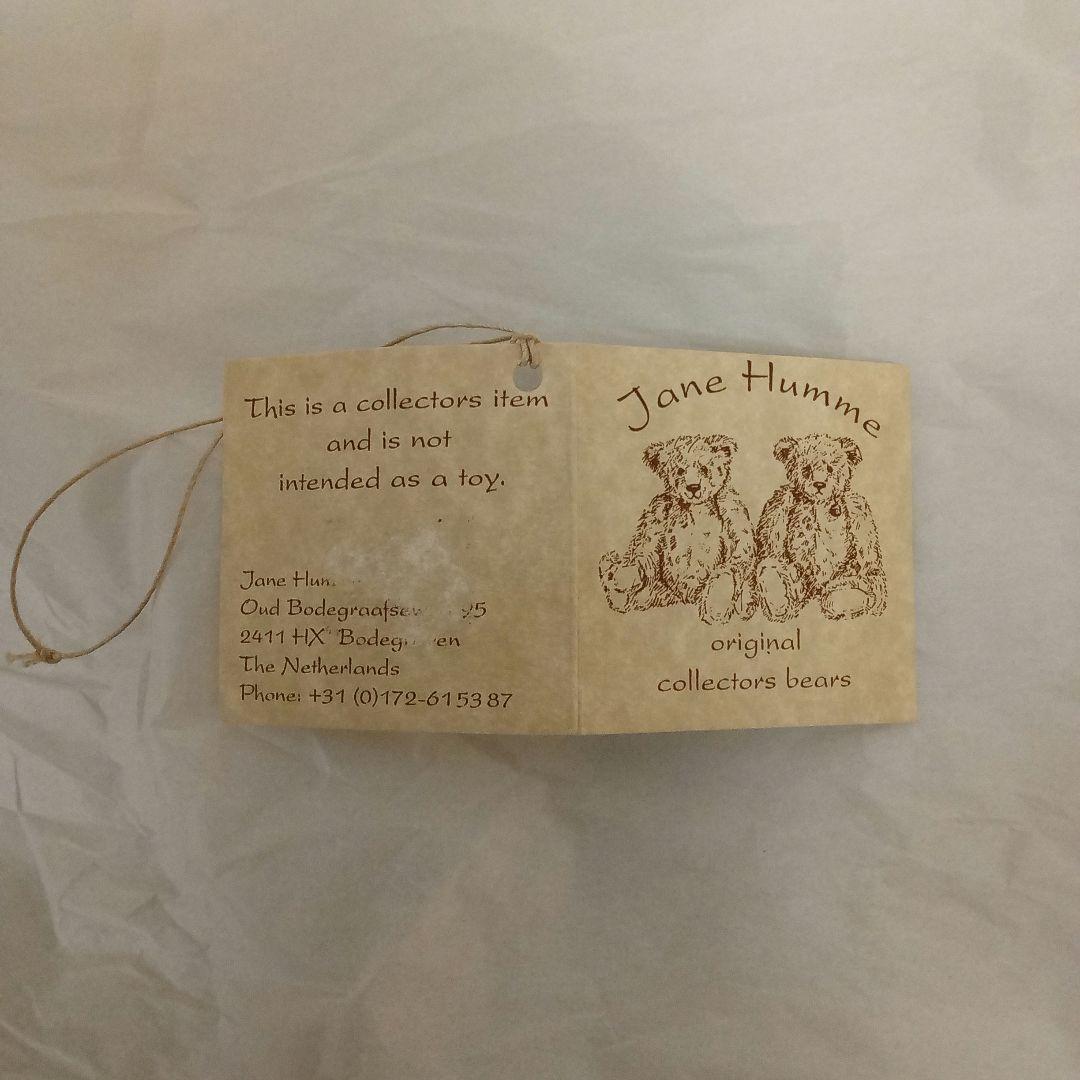 This is a collectors item
and is not
intended as a toy.
Jane
Oud
2411 HX
The Netherlands
Phone: +31 (0)172-615387
Jane Humme
original
collectors bears